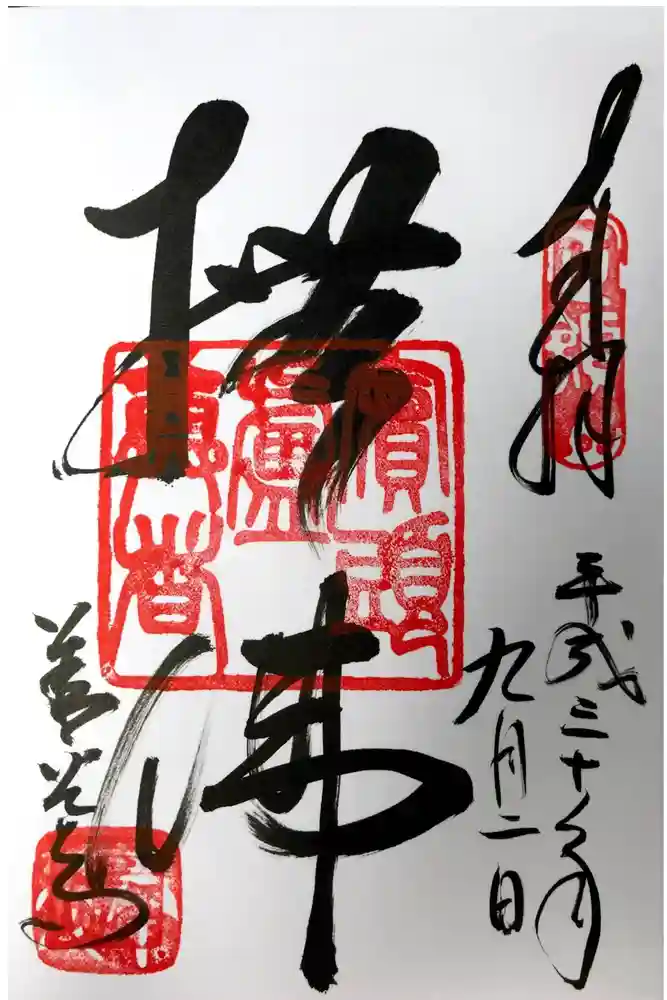 奉拝
平成三十年
九月二日
撫佛
賓頭
盧
尊者
善光寺